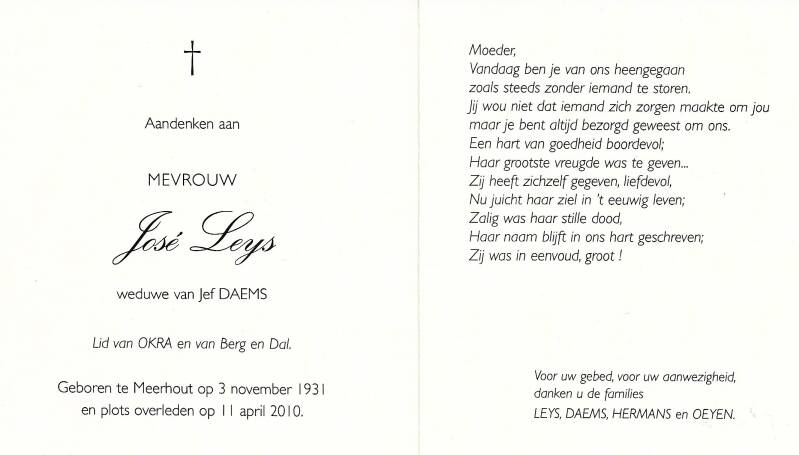 Aandenken aan
MEVROUW
José Leys
weduwe van Jef DAEMS
Lid van OKRA en van Berg en Dal.
Geboren te Meerhout op 3 november 1931
en plots overleden op 11 april 2010.
Moeder,
Vandaag ben je van ons heengegaan
zoals steeds zonder iemand te storen.
Jij wou niet dat iemand zich zorgen maakte om jou
maar je bent altijd bezorgd geweest om ons.
Een hart van goedheid boordevol;
Haar grootste vreugde was te geven...
Zij heeft zichzelf gegeven, liefdevol,
Nu juicht haar ziel in 't eeuwig leven;
Zalig was haar stille dood,
Haar naam blijft in ons hart geschreven;
Zij was in eenvoud, groot !
Voor uw gebed, voor uw aanwezigheid,
danken u de families
LEYS, DAEMS, HERMANS en OEYEN.